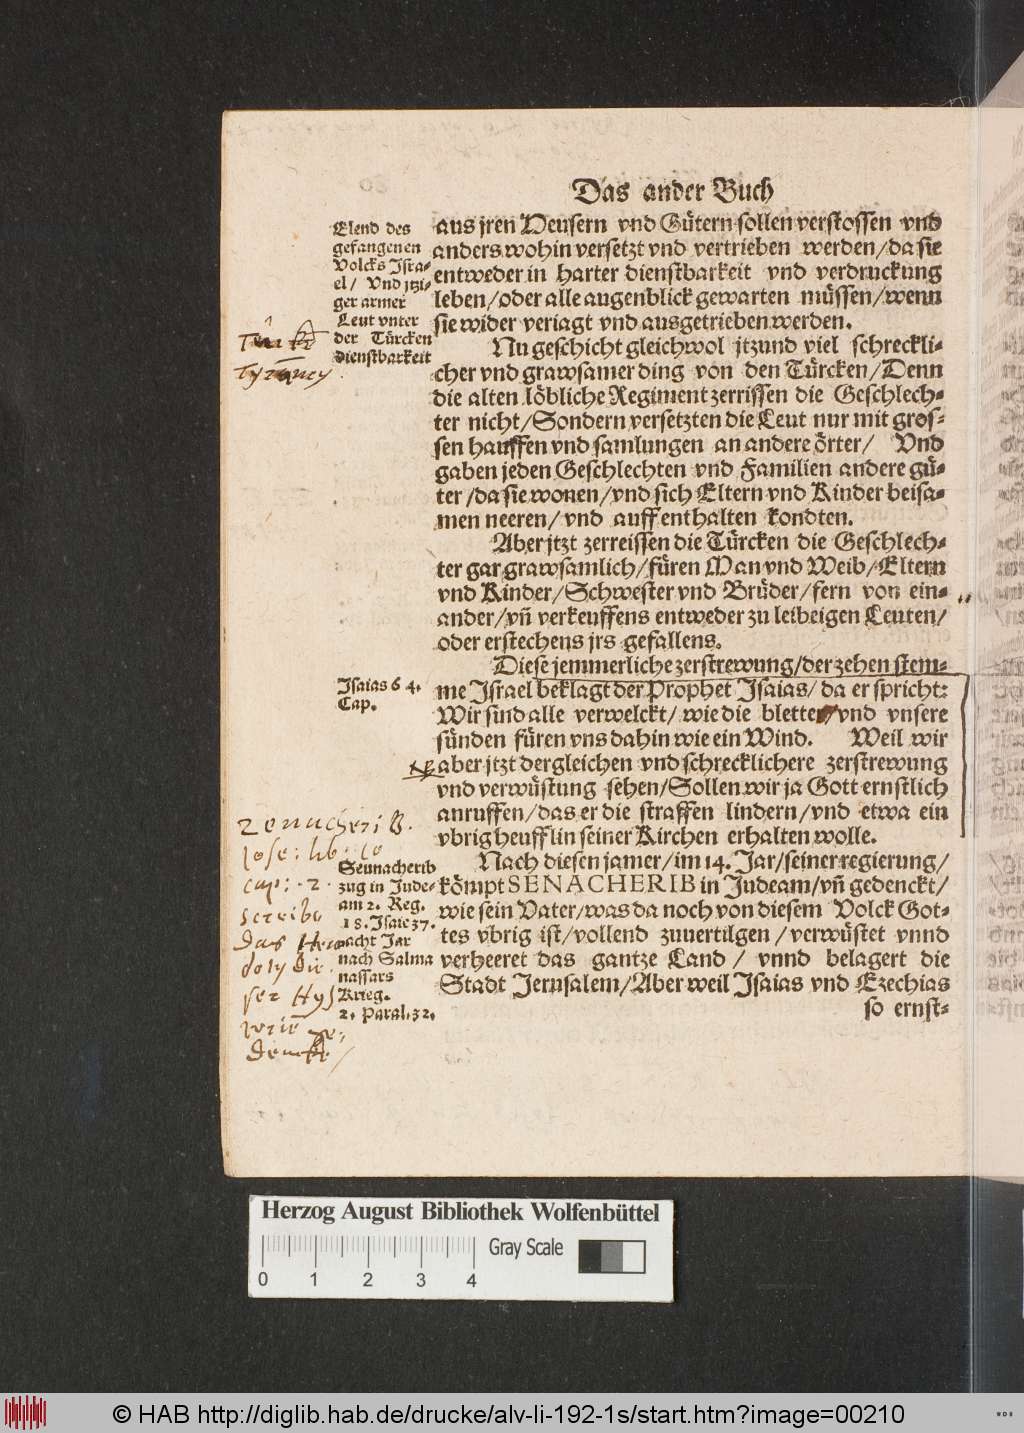 Das ander Buch
aus jren Heusern vnd Gütern sollen verstossen vnd
anders wohin versetzt vnd vertrieben werden/da sie
entweder in harter dienstbarkeit vnd verdruckung
leben/oder alle augenblick gewarten müssen/wenn
sie wider veriagt vnd ausgetrieben werden.
Nu geschicht gleichwol jtzund viel schreckli-
cher vnd grawsamer ding von den Türcken/Denn
die alten löbliche Regiment zerrissen die Geschlech-
ter nicht/Sondern versetzten die Leut nur mit gros-
sen hauffen vnd samlungen an andere örter/ Vnd
gaben jeden Geschlechten vnd Familien andere gü-
ter/da sie wonen/vnd sich Eltern vnd Kinder beisa-
men neeren/vnd auffenthalten kondten.
Aber jtzt zerreissen die Türcken die Geschlech-
ter gar grawsamlich/füren Man vnd Weib/Eltern
vnd Kinder/Schwester vnd Brüder/fern von ein-
ander/vñ verkeuffens entweder zu leibeigen Leuten/
oder erstechens jrs gefallens.
Diese jemmerliche zerstrewung/der zehen stem-
me Israel beklagt der Prophet Isaias/da er spricht:
Wir sind alle verwelckt/wie die bletter/vnd vnsere
sünden füren vns dahin wie ein Wind. Weil wir
aber jtzt dergleichen vnd schrecklichere zerstrewung
vnd verwüstung sehen/Sollen wir ja Gott ernstlich
anruffen/das er die straffen lindern/vnd etwa ein
vbrig heufflin seiner Kirchen erhalten wolle.
Nach diesen jamer/im 14. Jar/seiner regierung/
kömpt SENACHERIB in Judeam/vñ gedenckt/
wie sein Vater/was da noch von diesem Volck Got-
tes vbrig ist/vollend zuuertilgen/verwüstet vnnd
verheeret das gantze Land/ vnnd belagert die
Stadt Jerusalem/Aber weil Isaias vnd Ezechias
so ernst-
Elend des
gefangenen
Volcks Isra-
el/ Vnd jtzi-
ger armer
Leut vnter
der Türcken
dienstbarkeit
Isaias 64.
Cap.
Seunacherib
zug in Jude-
am 2. Reg.
18. Isaie 37.
acht Jar
nach Salma
nassars
Krieg.
2. Paral. 32.
Tyranney
Senacherib.
Jose: lib: 10
cap: 2.
scribe
Das
Herzog August Bibliothek Wolfenbüttel
Gray Scale
0 1 2 3 4
© HAB http://diglib.hab.de/drucke/alv-li-192-1s/start.htm?image=00210